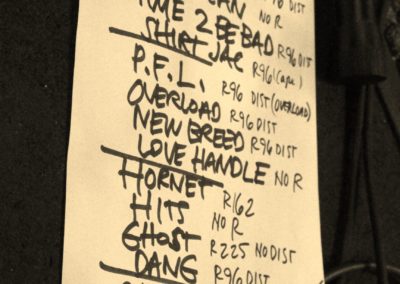 DIST
TIME 2 BE BAD NO R
SHIRT JAC R96 DIST
P.F.L. R96 DIST (OVERLOAD)
OVERLOAD R96 DIST
NEW BREED R96 DIST
LOVE HANDLE NO R
HORNET R162
HITS NO R
GHOST R225 NO DIST
DANG R96 DIST